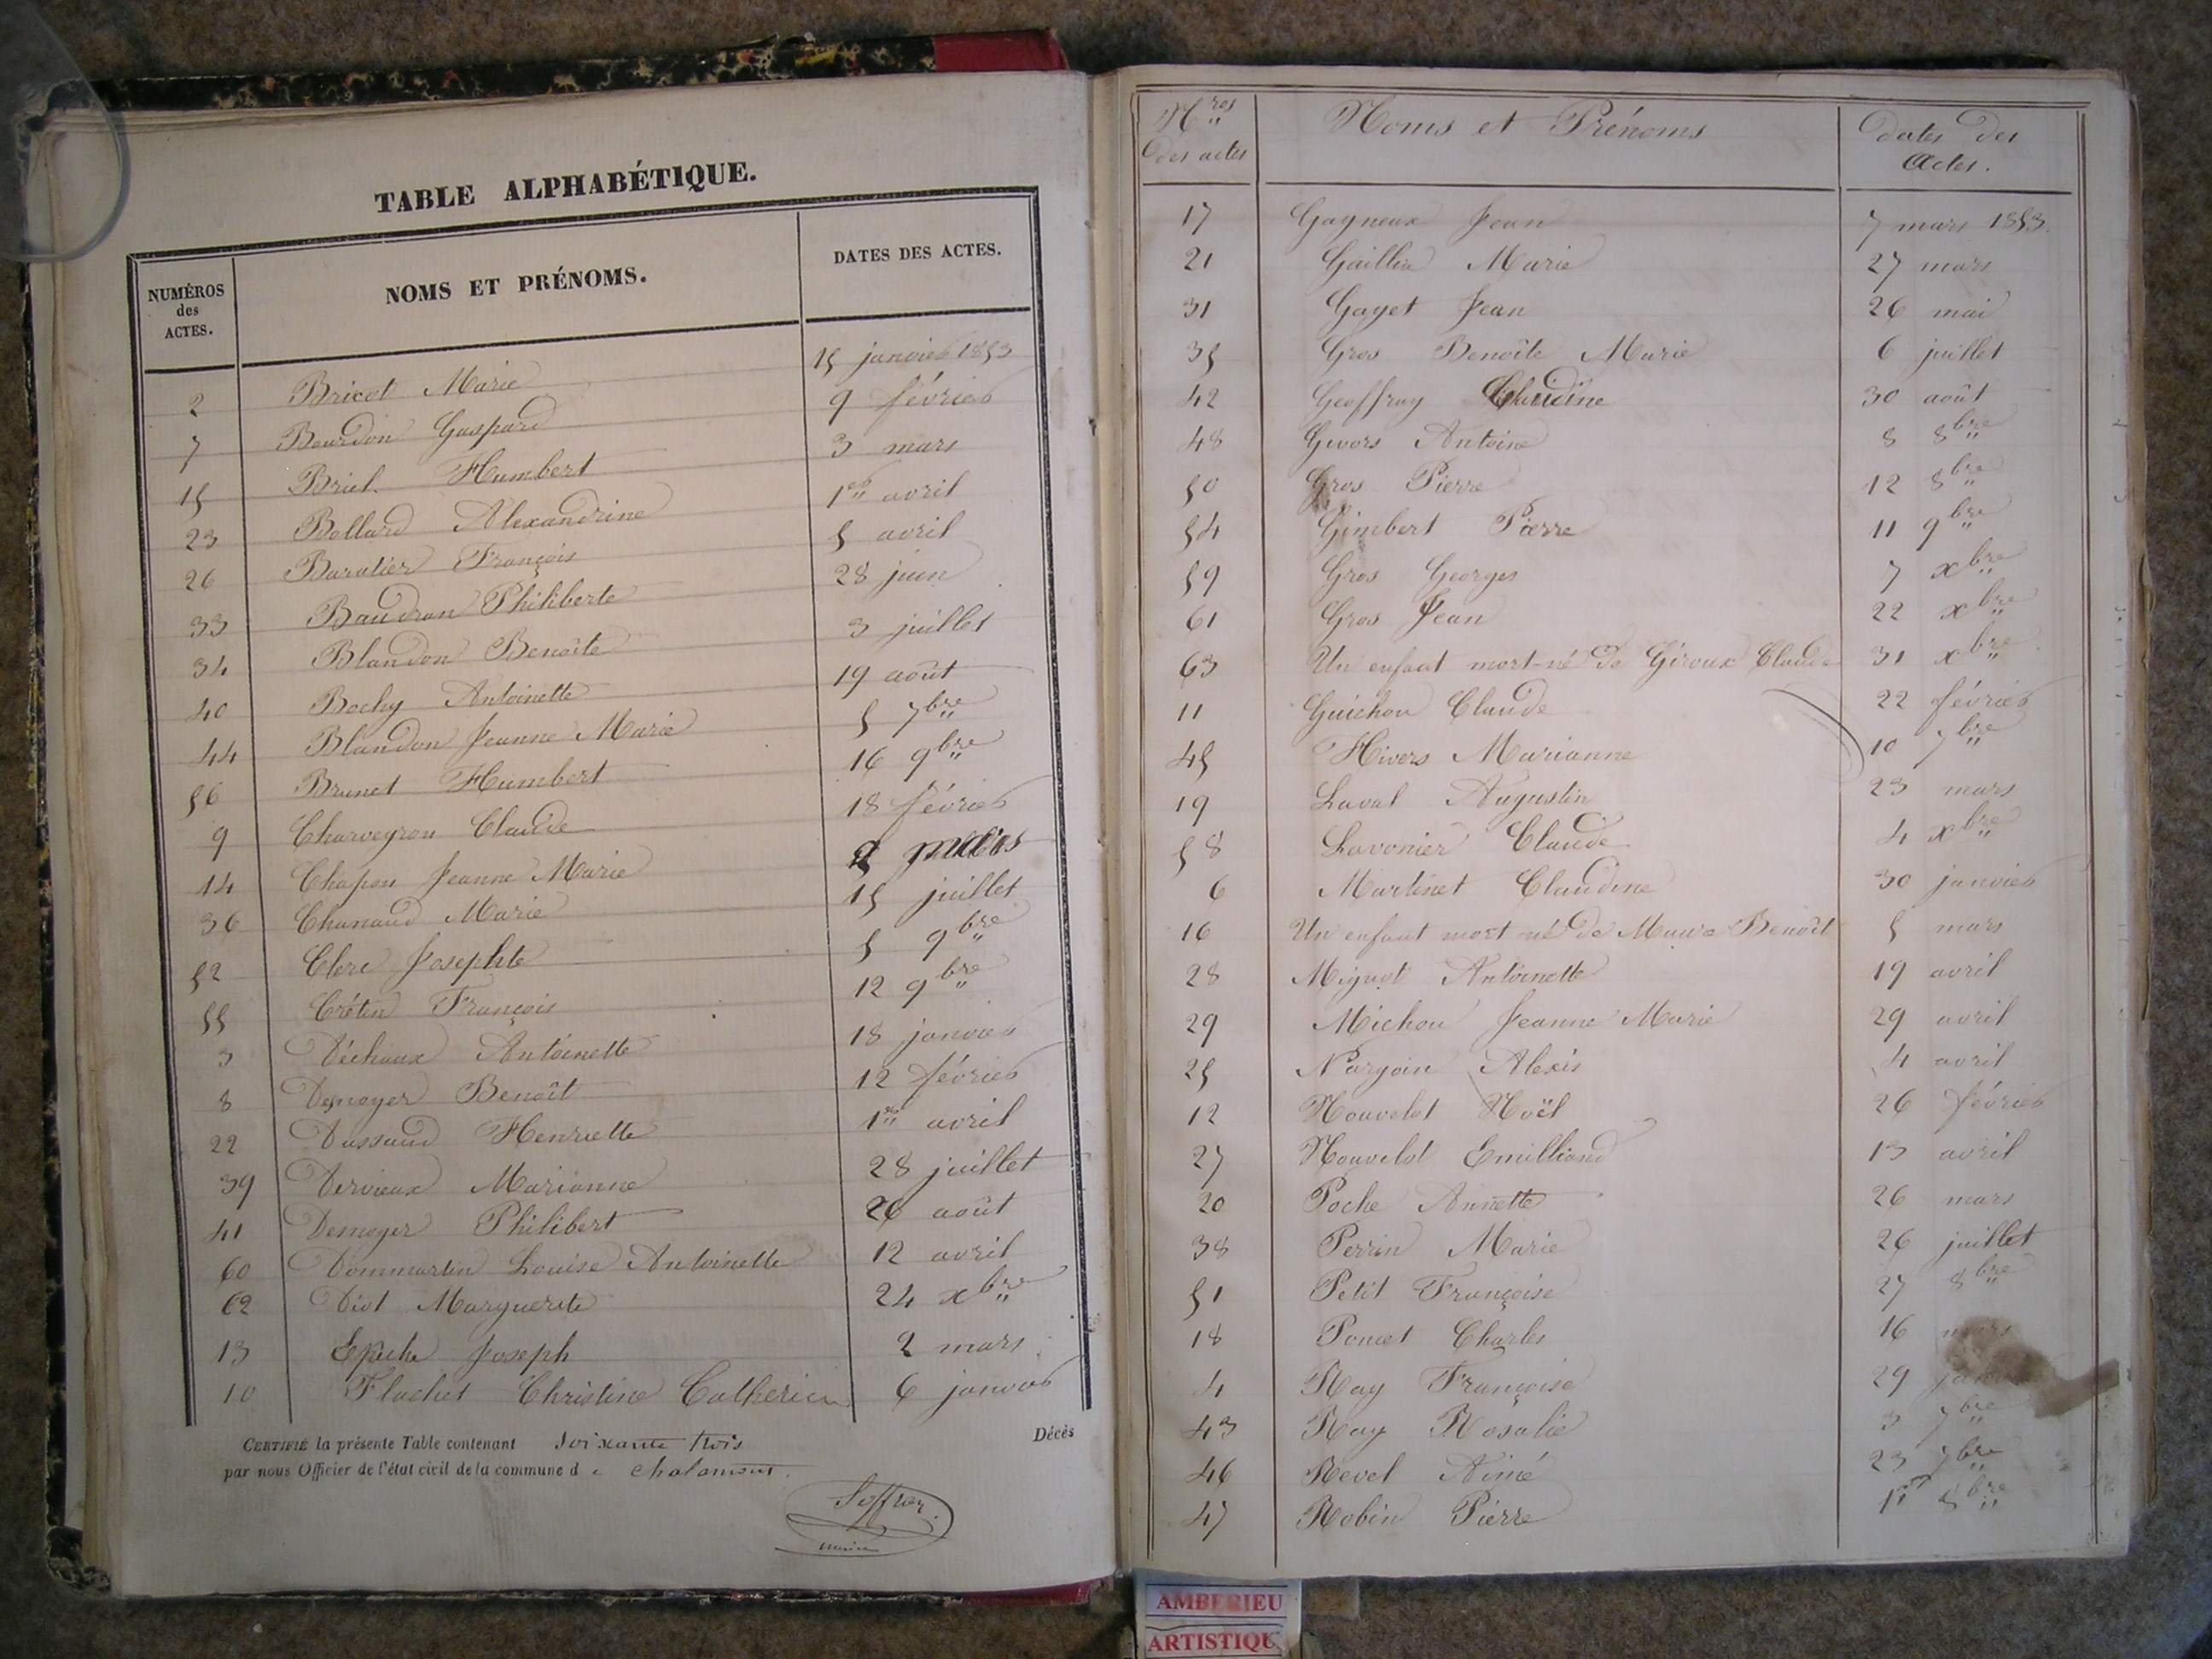 TABLE ALPHABÉTIQUE.
NUMÉROS des ACTES. NOMS ET PRÉNOMS. DATES DES ACTES.
2 Bricot Marie 15 janvier 1853
7 Bourdon Gaspard 9 février
15 Briel Humbert 3 mars
23 Bollard Alexandrine 1er avril
26 Baratier François 5 avril
33 Baudran Philiberte 28 juin
34 Blandon Benoîte 3 juillet
40 Bochy Antoinette 19 août
44 Blandon Jeanne Marie 5 7bre
56 Brunet Humbert 16 9bre
9 Charveyron Claude 18 février
14 Chapon Jeanne Marie 2 mars
36 Chanaud Marie 15 juillet
52 Clerc Josephte 5 9bre
55 Crétin François 12 9bre
3 Déchaux Antoinette 18 janvier
8 Desnoyer Benoît 12 février
22 Dussaud Henriette 1er avril
39 Dervieux Marianne 28 juillet
41 Demoyer Philibert 26 août
60 Dommartin Louise Antoinette 12 avril
62 Diot Marguerite 24 xbre
13 Joseph 2 mars
10 Flachet Christine Catherine 6 janvier
CERTIFIÉ la présente Table contenant soixante trois Décès
par nous Officier de l'état civil de la commune de Chalamont.
maire
Nres des actes Noms et Prénoms dates des Actes.
17 Gagneux Jean 7 mars 1853.
21 Gaillin Marie 27 mars
31 Gayet Jean 26 mai
35 Gros Benoîte Marie 6 juillet
42 Geoffray Claudine 30 août
48 Givors Antoine 8 8bre
50 Gros Pierre 12 8bre
54 Gimbert Pierre 11 9bre
59 Gros Georges 7 xbre
61 Gros Jean 22 xbre
63 Un enfant mort-né de Giroux Claude 31 xbre
11 Guichon Claude 22 février
45 Hivers Marianne 10 7bre
19 Laval Augustin 23 mars
58 Lavonier Claude 4 xbre
6 Martinet Claudine 30 janvier
16 Un enfant mort né de Benoît 5 mars
28 Mignot Antoinette 19 avril
29 Michon Jeanne Marie 29 avril
25 Nargoin Alexis 4 avril
12 Nouvelot Noël 26 février
27 Nouvelot Emilliand 13 avril
20 Poche Annette 26 mars
38 Perrin Marie 26 juillet
51 Petit Françoise 27 8bre
18 Poncet Charles 16 mars
4 Ray Françoise 29 janvier
43 Ray Rosalie 3 7bre
46 Revel Aimé 23 7bre
47 Robin Pierre 1er 8bre
AMBERIEU
ARTISTIQU